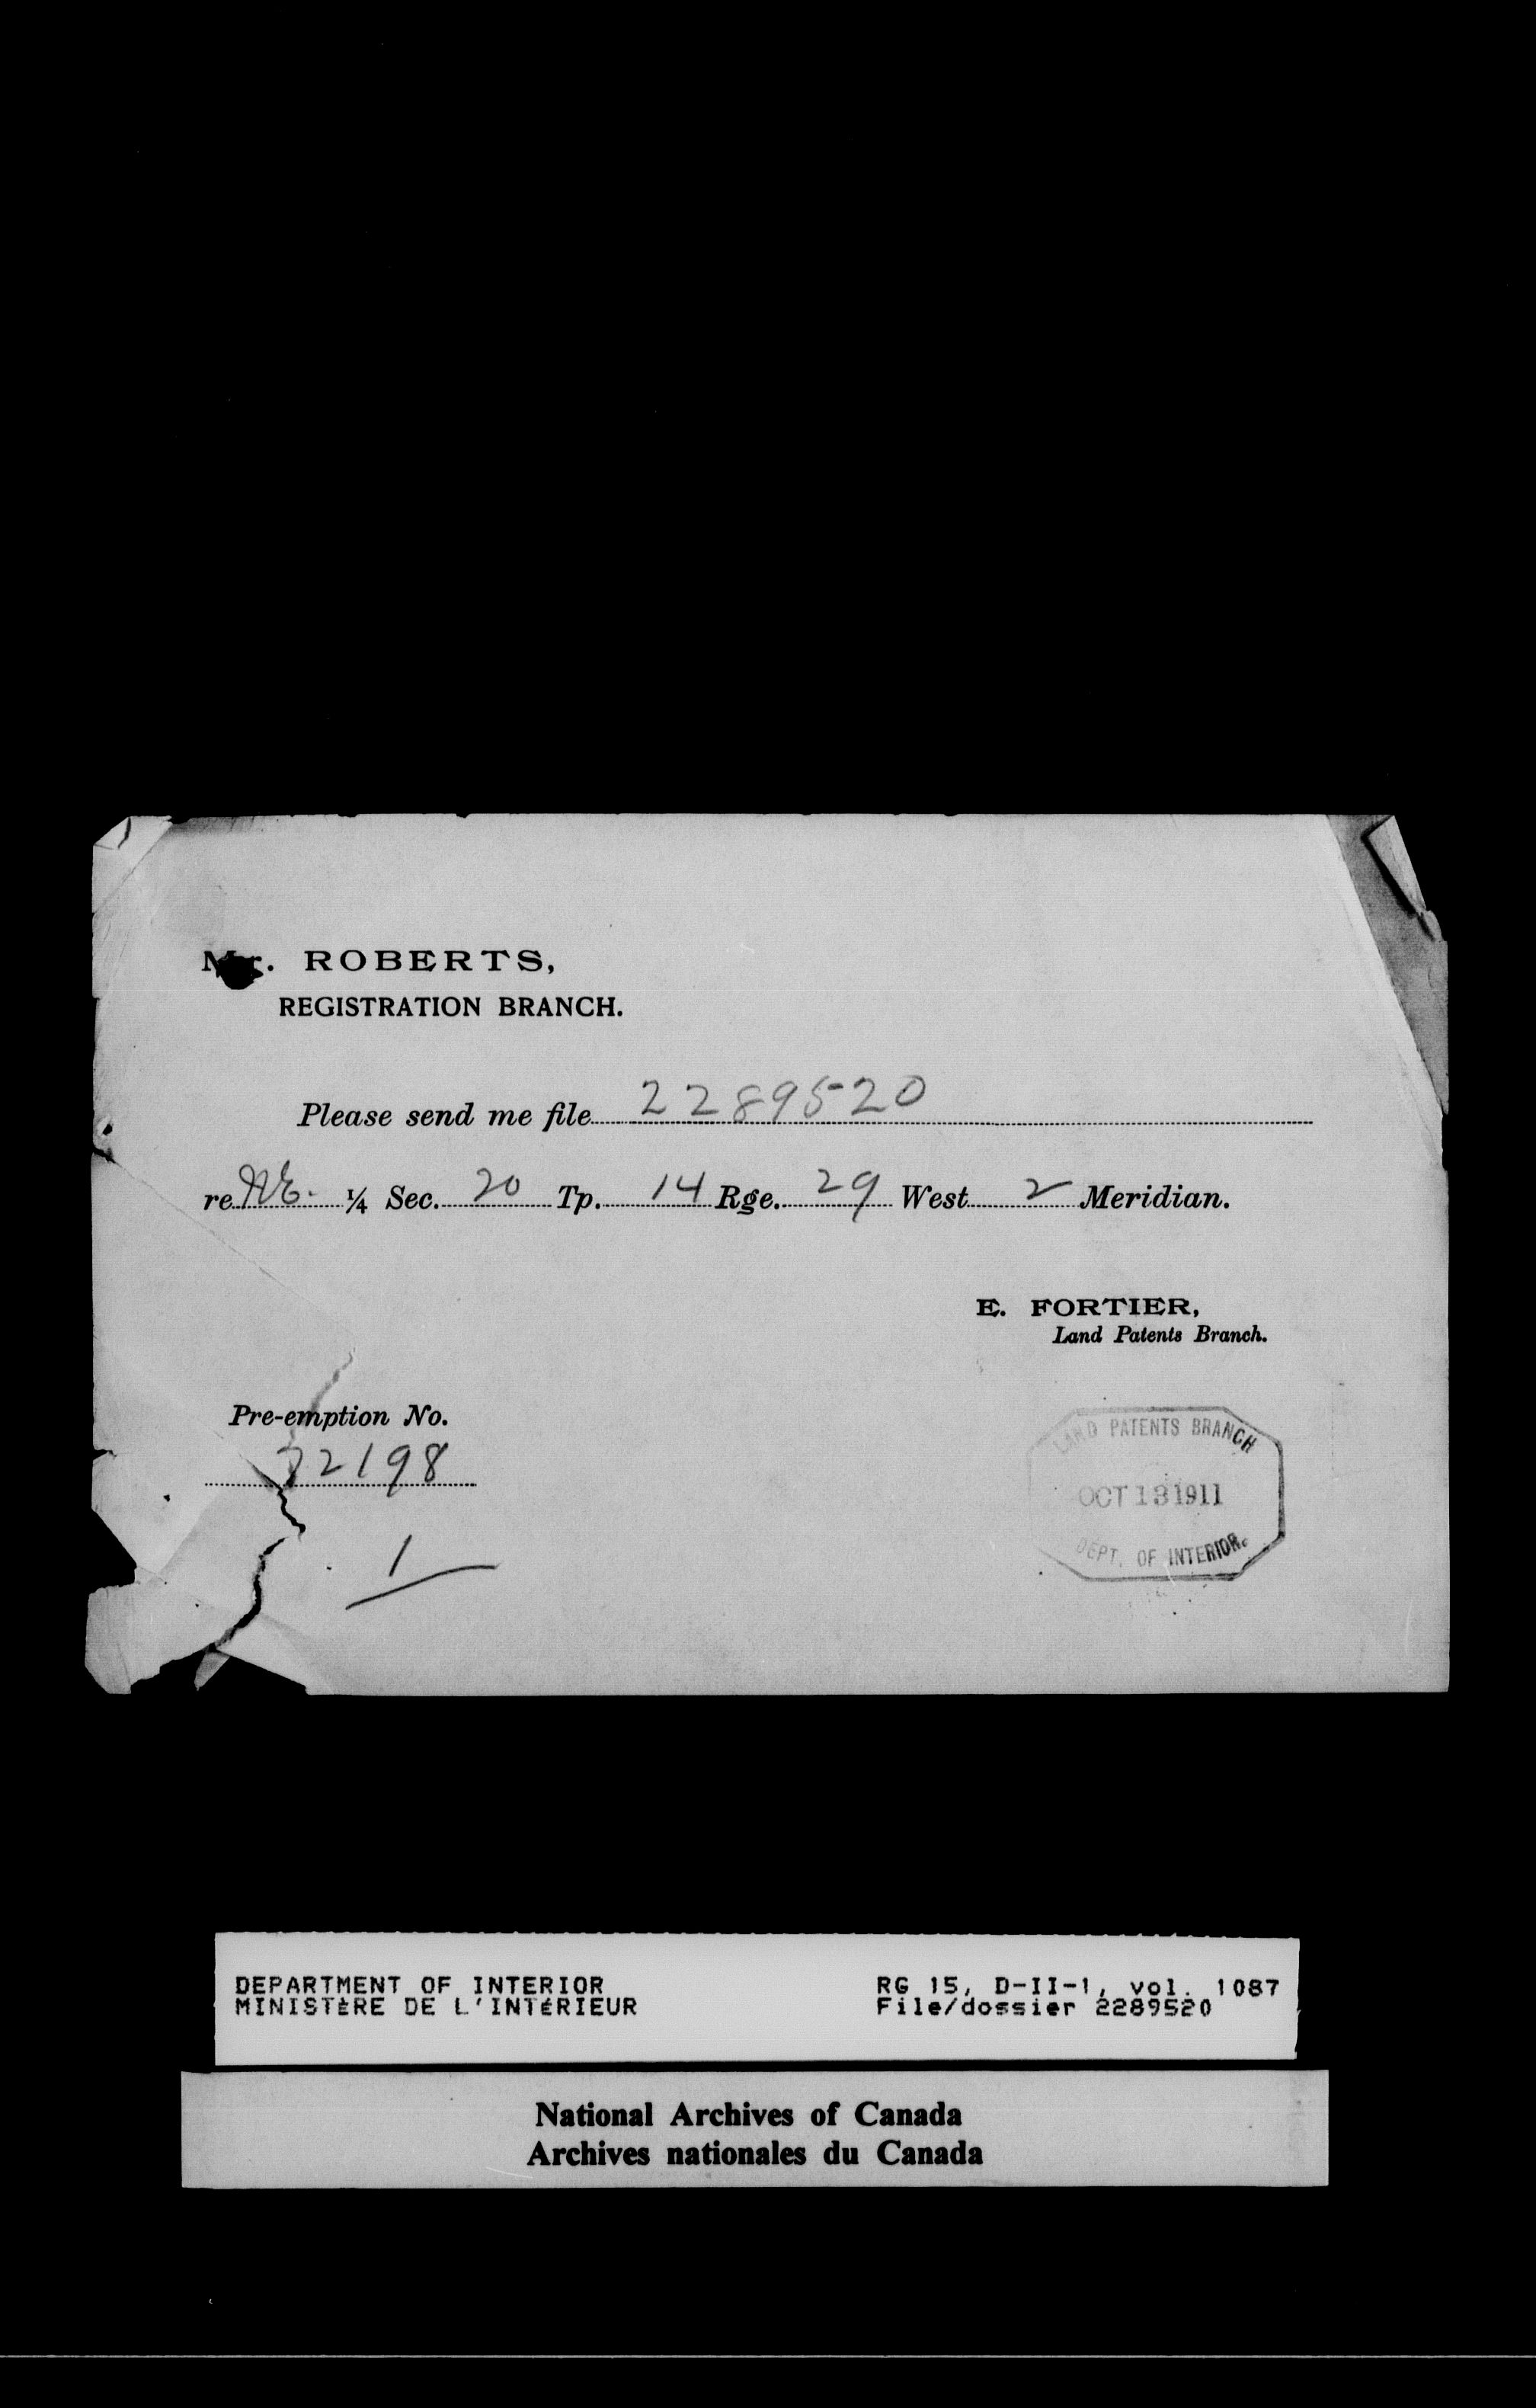 Mr. ROBERTS,
REGISTRATION BRANCH.
Please send me file 2289520
re NE. ¼ Sec. 20 Tp. 14 Rge. 29 West 2 Meridian.
E. FORTIER,
Land Patents Branch.
Pre-emption No.
22198
1
LAND PATENTS BRANCH
OCT 13 1911
DEPT. OF INTERIOR.
DEPARTMENT OF INTERIOR
MINISTÈRE DE L'INTÉRIEUR
RG 15, D-II-1, vol. 1087
File/dossier 2289520
National Archives of Canada
Archives nationales du Canada